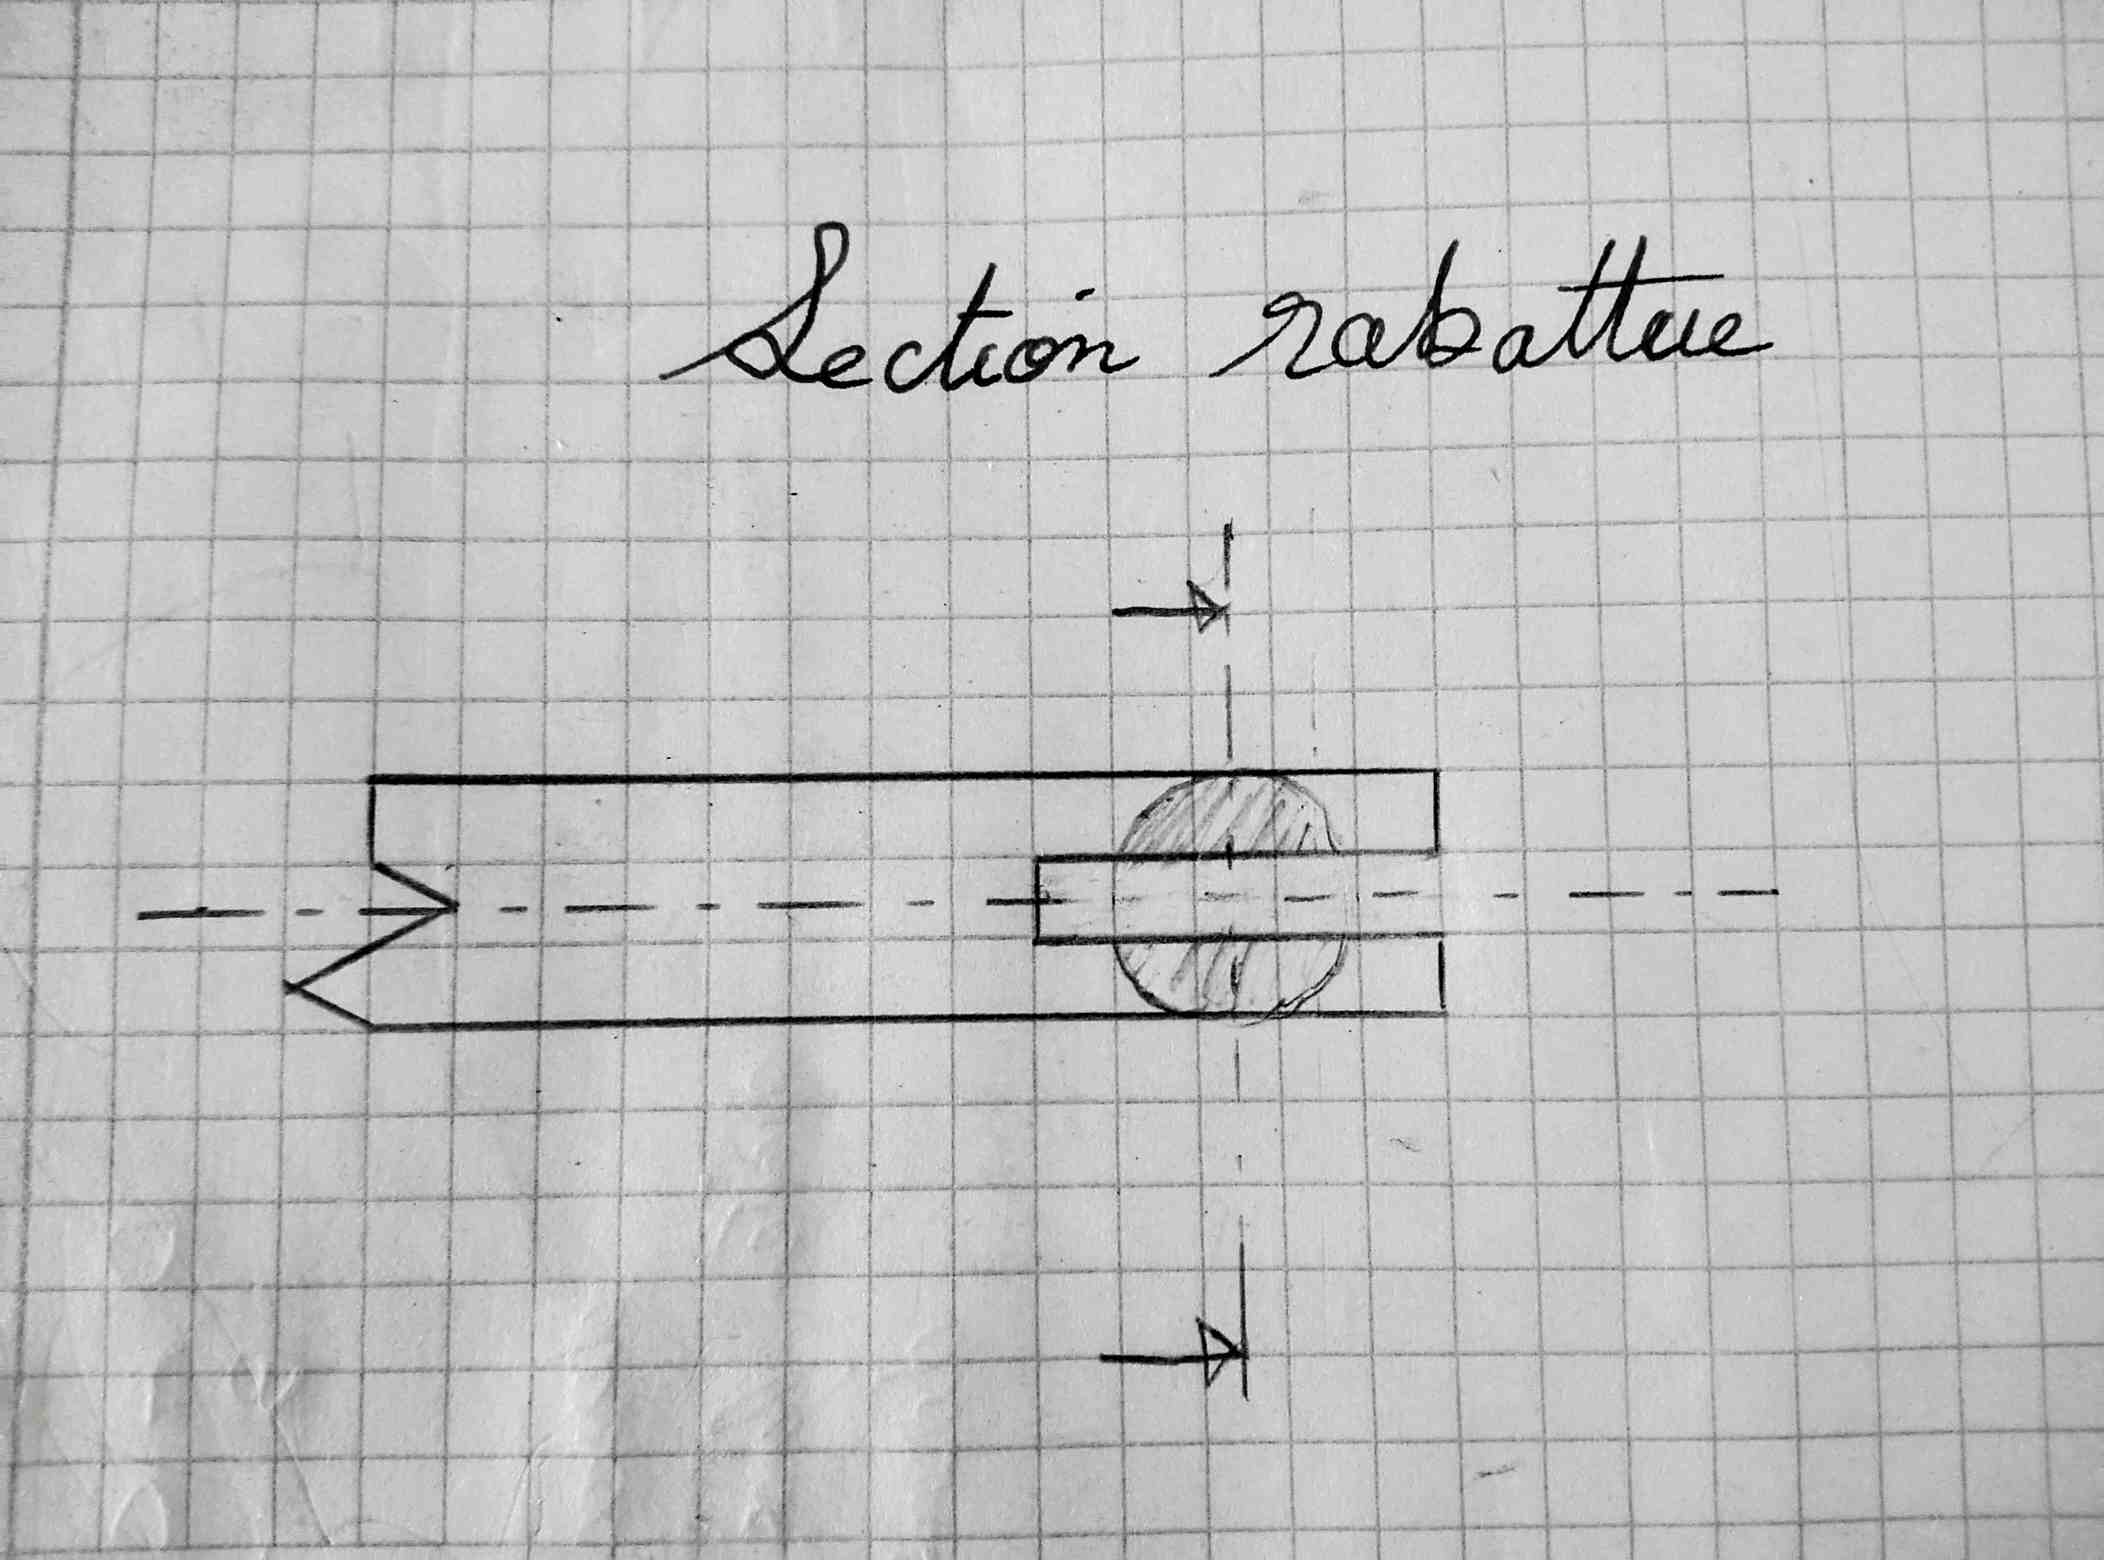 Section rabattue